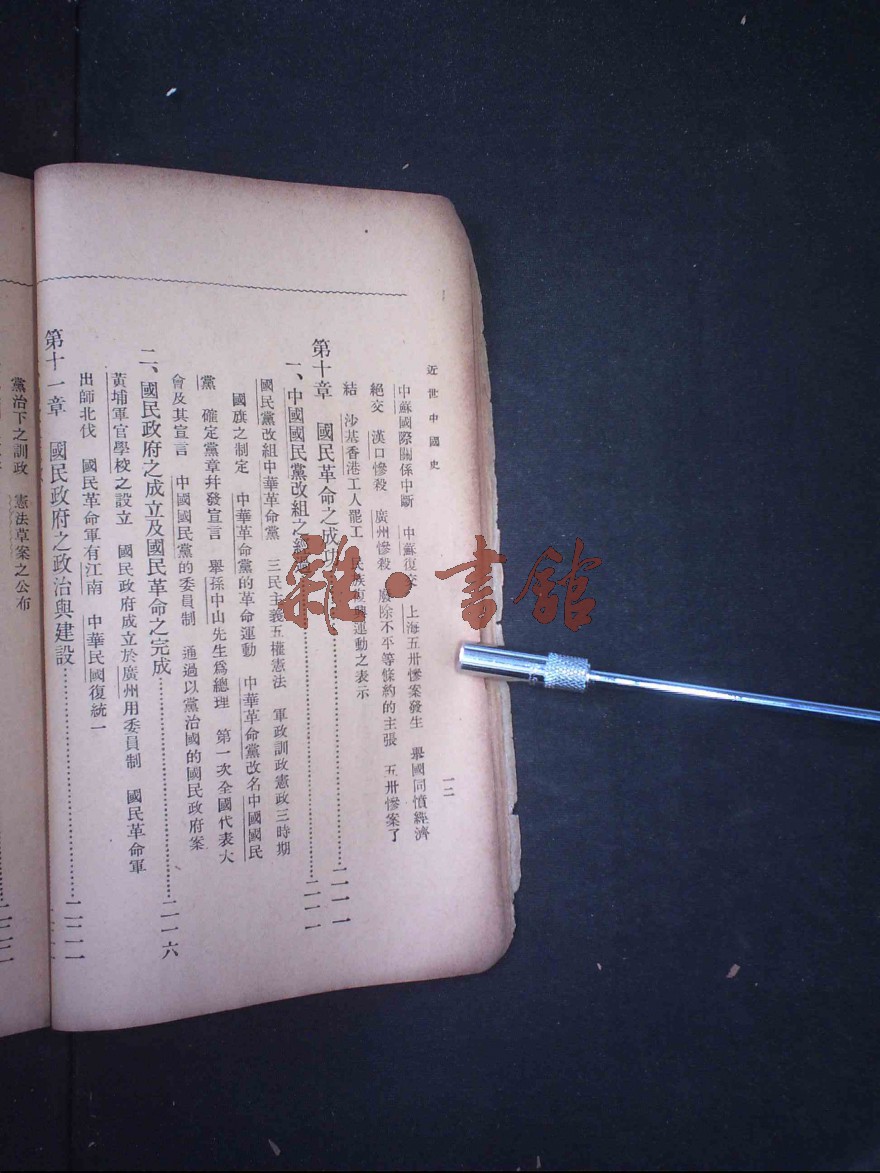 近世中國史
一二
中蘇國際關係中斷 中蘇復交 上海五卅慘案發生 舉國同憤經濟
絕交 漢口慘殺 廣州慘殺 廢除不平等條約的主張 五卅慘案了
結 沙基香港工人罷工 民族復興運動之表示
第十章 國民革命之成功……二一一
一、中國國民黨改組之經過……二一一
國民黨改組中華革命黨 三民主義五權憲法 軍政訓政憲政三時期
國旗之制定 中華革命黨的革命運動 中華革命黨改名中國國民
黨 確定黨章幷發宣言 舉孫中山先生爲總理 第一次全國代表大
會及其宣言 中國國民黨的委員制 通過以黨治國的國民政府案
二、國民政府之成立及國民革命之完成……二一六
黃埔軍官學校之設立 國民政府成立於廣州用委員制 國民革命軍
出師北伐 國民革命軍有江南 中華民國復統一
第十一章 國民政府之政治與建設……二二一
黨治下之訓政 憲法草案之公布
雜·書館